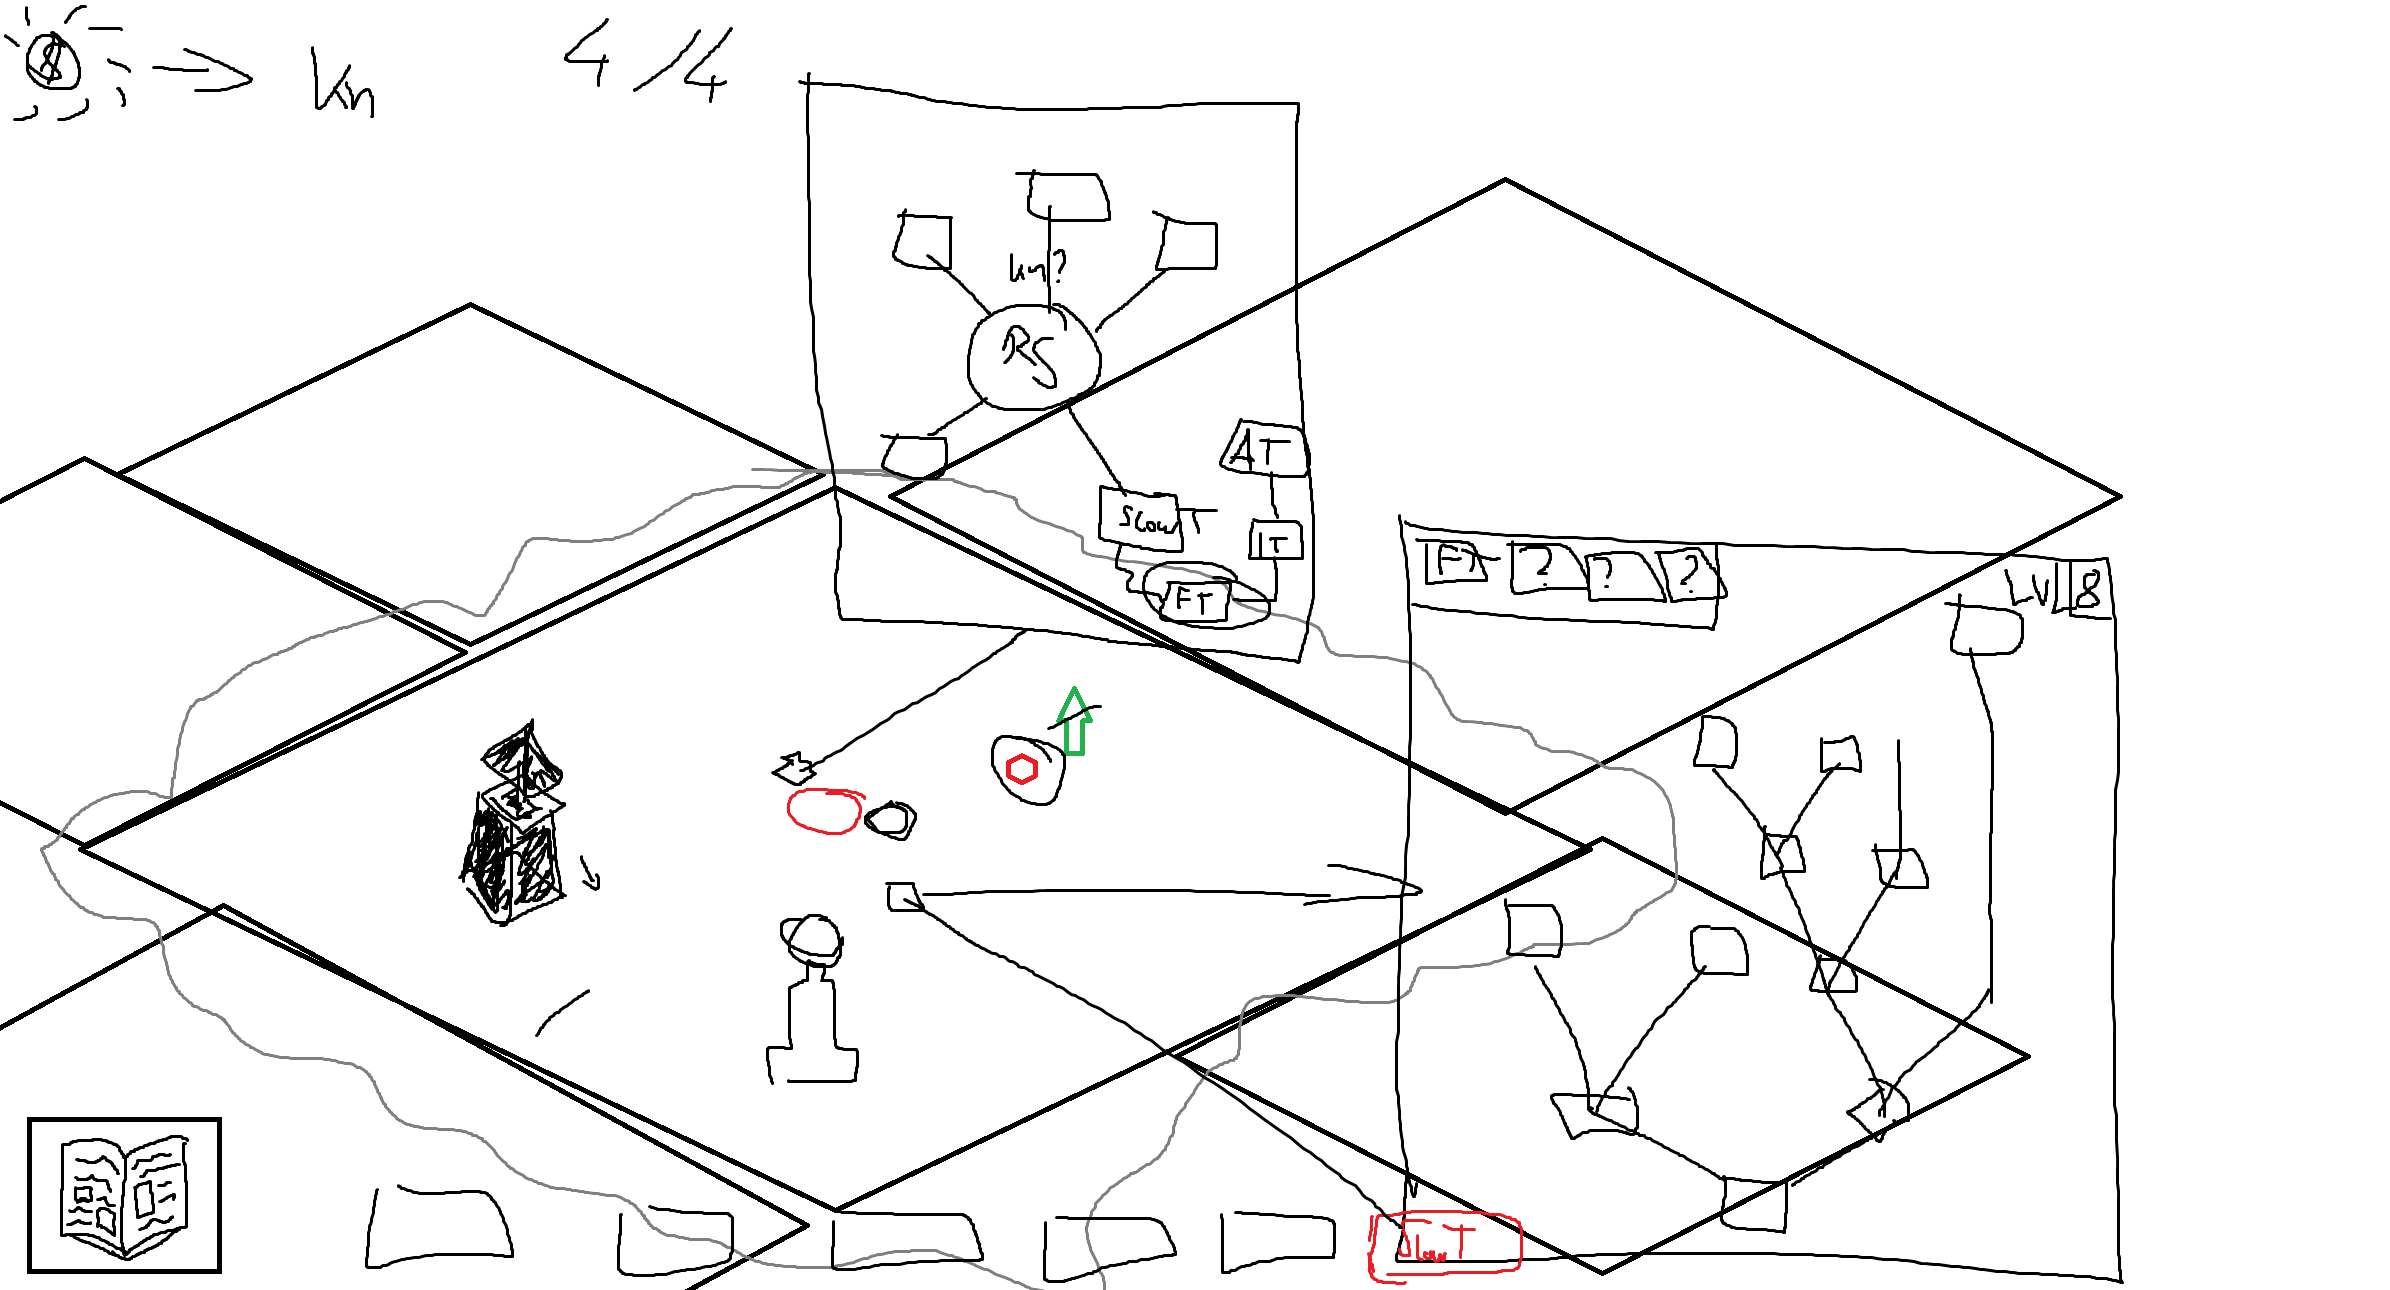 $ Kn 4/4
Kn?
RS
AT
Slow T
IT
FT
FT ? ? ?
LV 8
Slow T